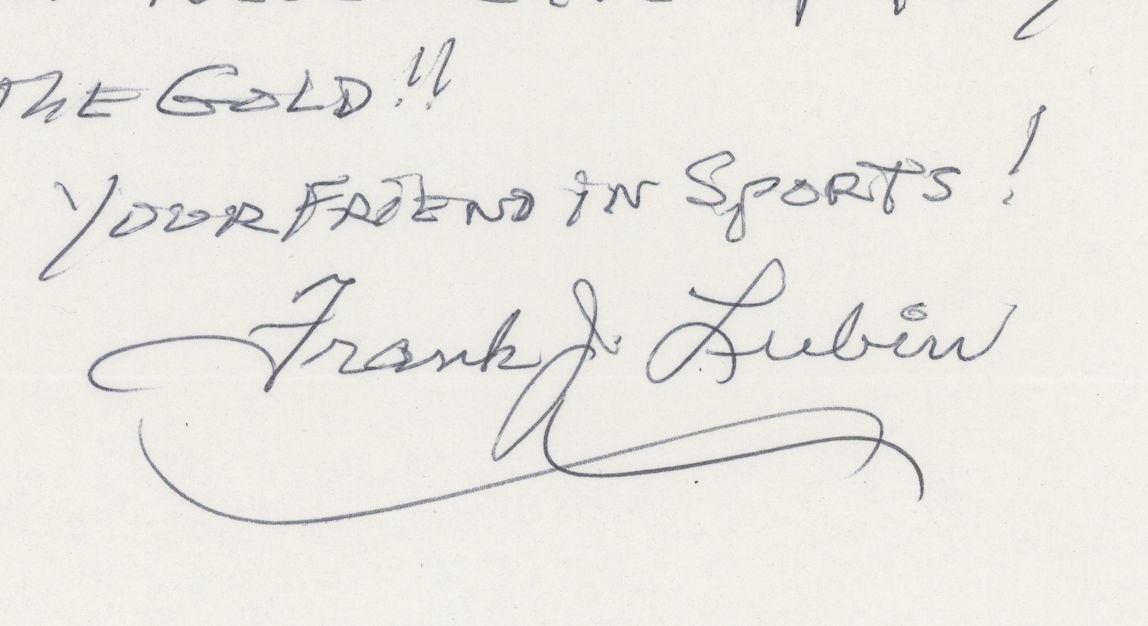 the GOLD!!
YOUR FRIEND IN SPORTS!
Frank J. Lubin